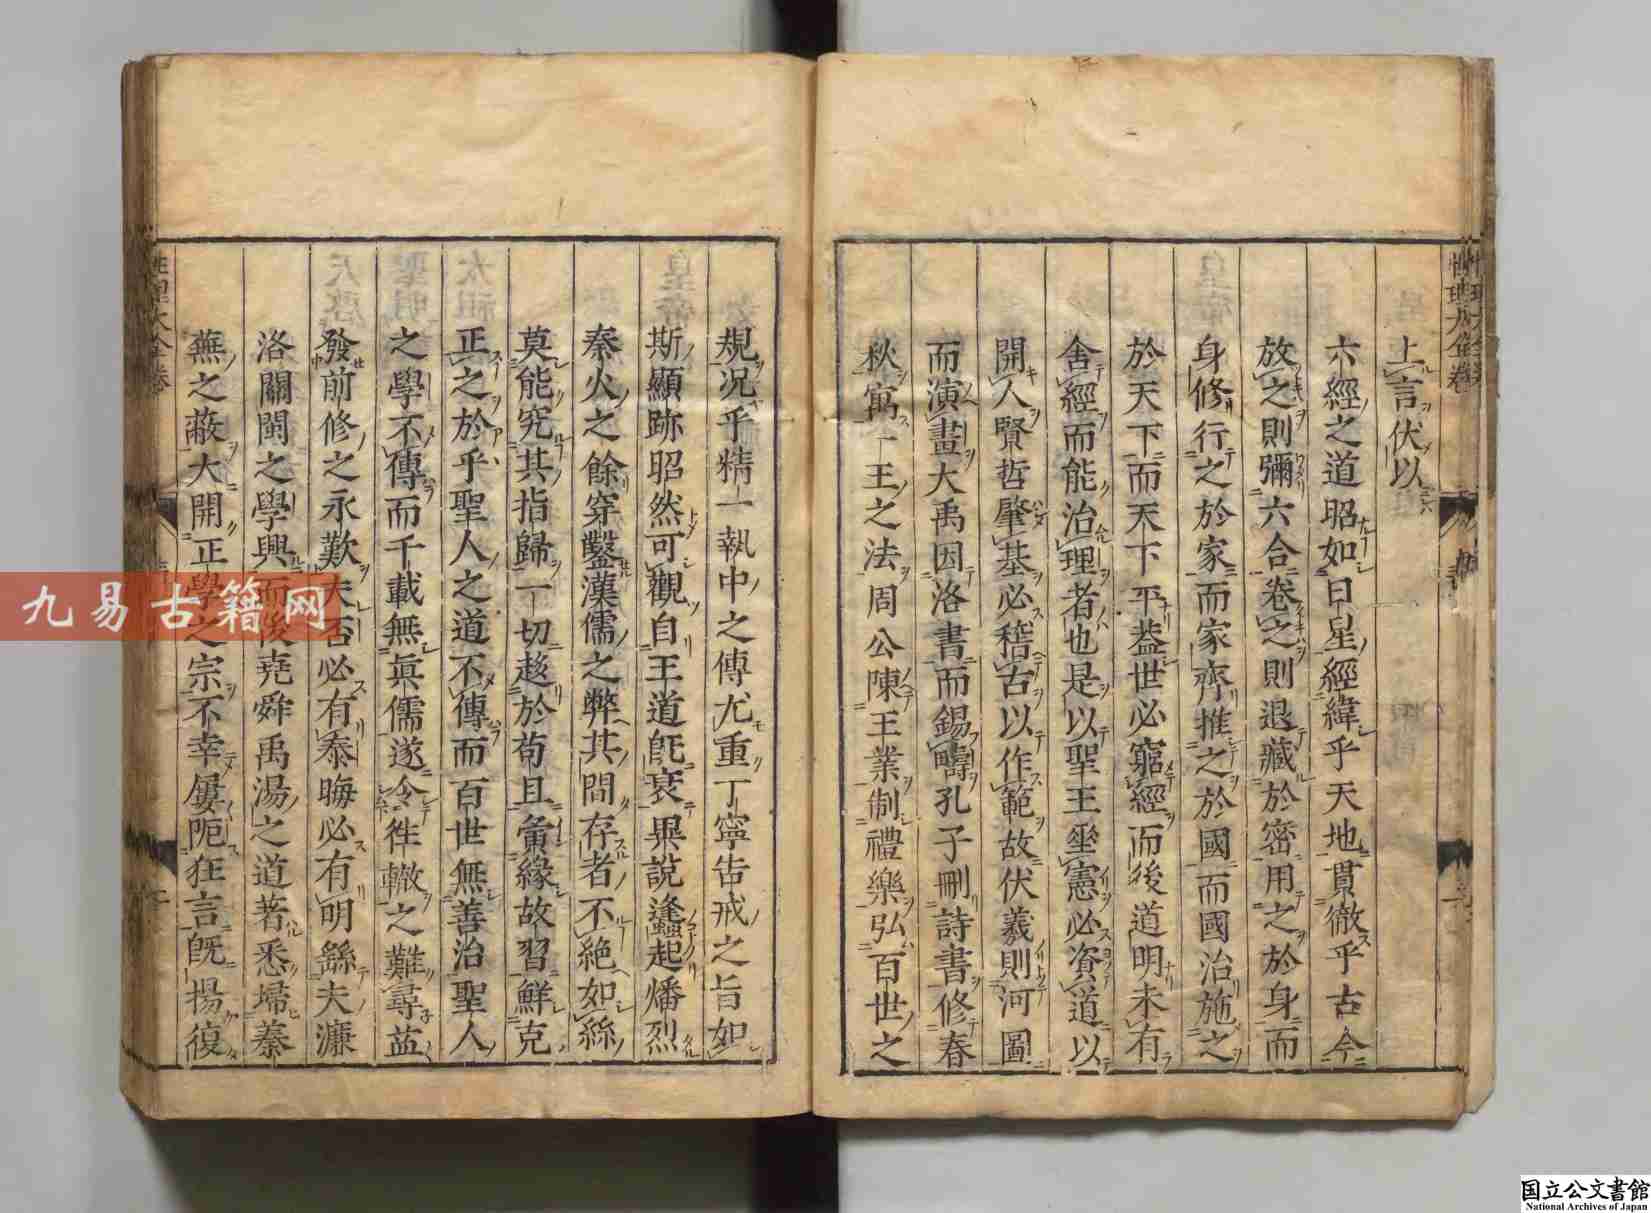 上言伏以
六經之道昭如日星經緯乎天地貫徹乎古今
放之則彌六合卷之則退藏於密用之於身而
身修行之於家而家齊推之於國而國治施之
於天下而天下平蓋世必窮經而後道明未有
舍經而能治理者也是以聖王垂憲必資道以
開人賢哲肇基必稽古以作範故伏羲則河圖
而演畫大禹因洛書而錫疇孔子刪詩書修春
秋寓一王之法周公陳王業制禮樂弘百世之
規况乎精一執中之傳尤重丁寧告戒之旨如
斯顯跡昭然可觀自王道旣衰異說蠭起燔烈
秦火之餘穿鑿漢儒之弊其間存者不絕如絲
莫能究其指歸一切趍於苟且夤緣故習鮮克
正之於乎聖人之道不傳而百世無善治聖人
之學不傳而千載無眞儒遂令徃轍之難尋益
發前修之永歎夫否必有泰晦必有明繇夫濂
洛關閩之學興而後堯舜禹湯之道著悉埽蓁
蕪之蔽大開正學之宗不幸屢阨狂言旣揚復
性理大全卷
九易古籍网
国立公文書館
National Archives of Japan